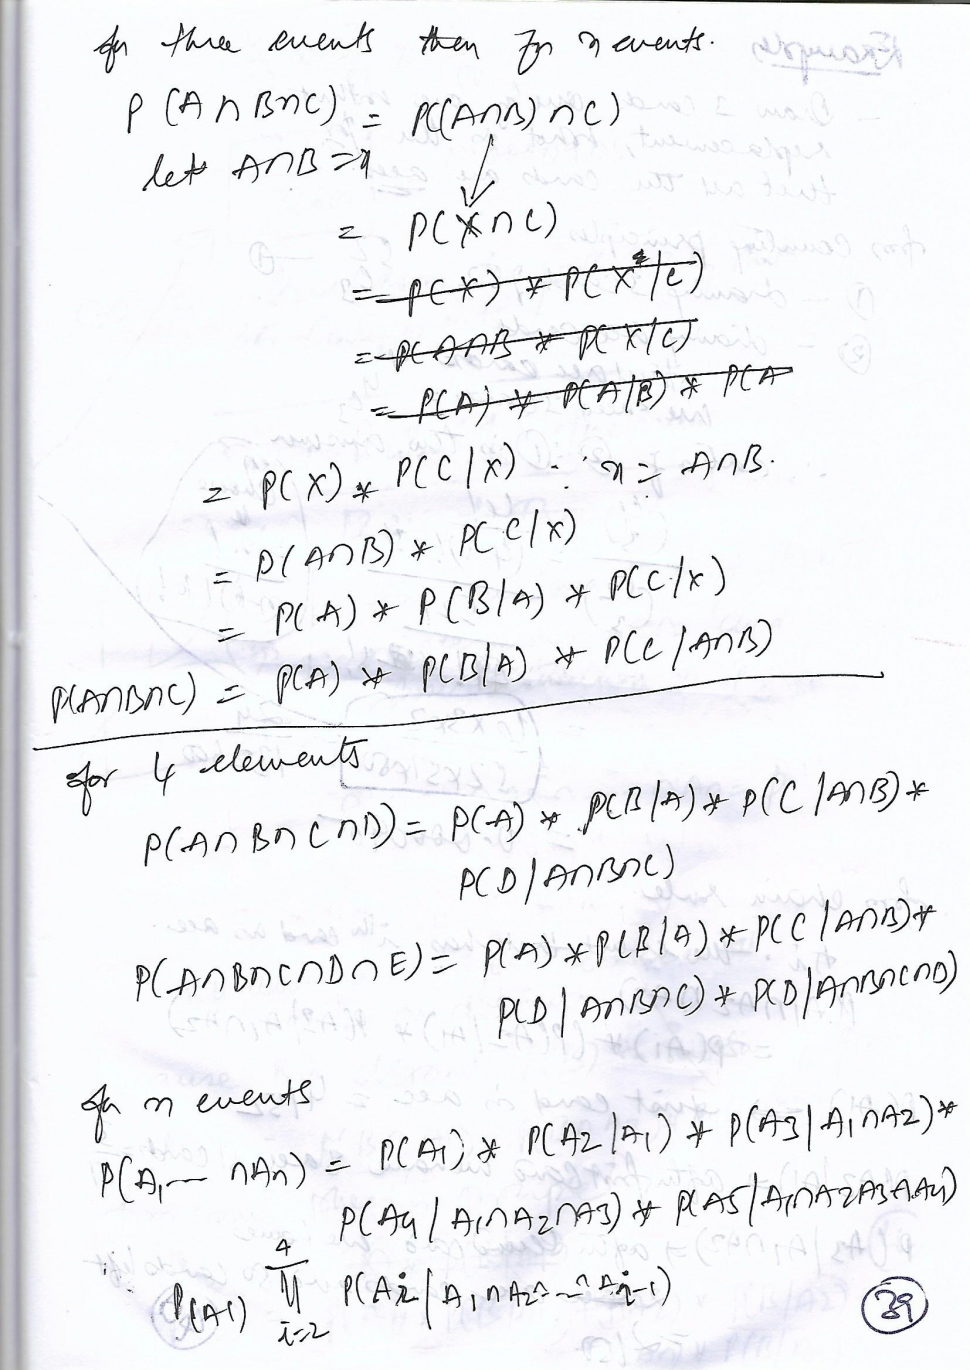 for three events then for n events.
P(A∩B∩C) = P((A∩B)∩C)
let A∩B = x
= P(X∩C)
= P(X) * P(X/C)
= P(A∩B * P(X/C)
= P(A) * P(A/B) * P(A
= P(X) * P(C/X) ∵ x = A∩B.
= P(A∩B) * P(C/X)
= P(A) * P(B/A) * P(C/X)
P(A∩B∩C) = P(A) * P(B/A) * P(C/A∩B)
for 4 elements
P(A∩B∩C∩D) = P(A) * P(B/A) * P(C/A∩B) *
P(D/A∩B∩C)
P(A∩B∩C∩D∩E) = P(A) * P(B/A) * P(C/A∩B) *
P(D/A∩B∩C) * P(D/A∩B∩C∩D)
for n events
P(A1 --- ∩An) = P(A1) * P(A2/A1) * P(A3/A1∩A2) *
P(A4/A1∩A2∩A3) * P(A5/A1∩A2A3∩A4)
∴ P(A1) 4 Π i=2 P(Ai/A1∩A2∩--∩Ai-1)
39